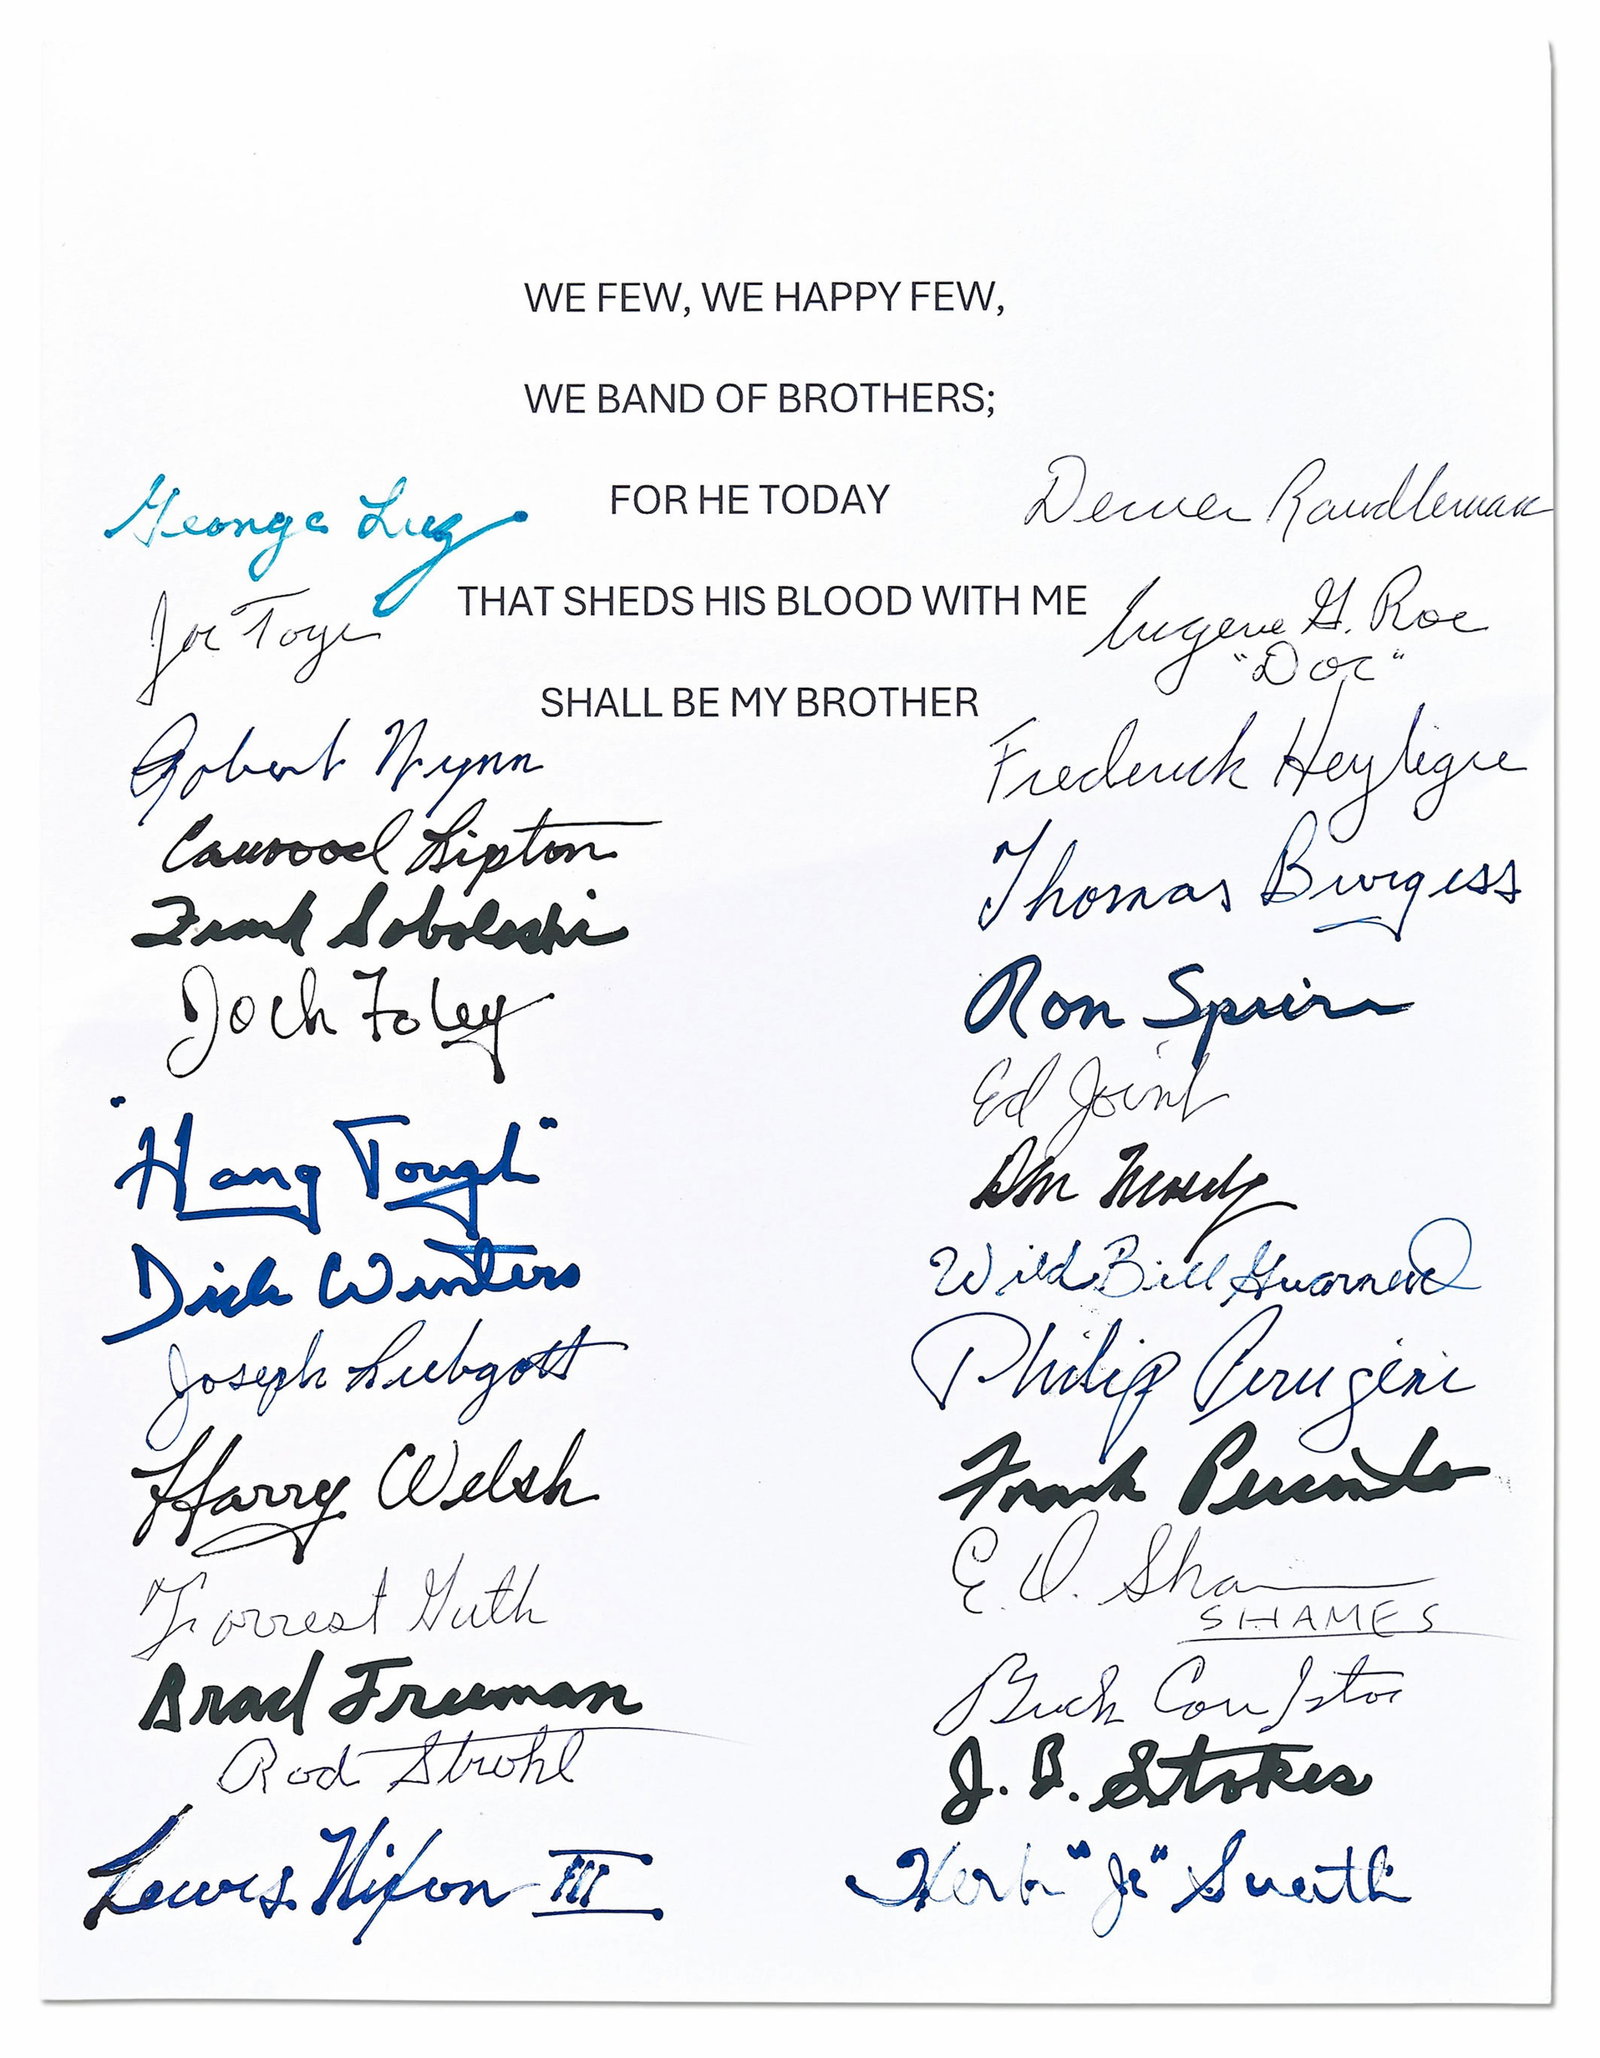 WE FEW, WE HAPPY FEW,
WE BAND OF BROTHERS;
FOR HE TODAY
THAT SHEDS HIS BLOOD WITH ME
SHALL BE MY BROTHER
George Luz
Joe Toye
Robert Wynn
Carwood Lipton
Frank Soboleski
Jack Foley
"Hang Tough"
Dick Winters
Joseph Liebgott
Harry Welsh
Forrest Guth
Brad Freeman
Rod Strohl
Lewis Nixon III
Denver Randleman
Eugene G. Roe
"Doc"
Frederick Heyliger
Thomas Burgess
Ron Speirs
Ed Joint
Don Moody
Wild Bill Guarnere
Philip Perugini
Frank Perconte
E. D. Shames
SHAMES
Buck Compton
J. B. Stokes
Herb "Jr" Suerth